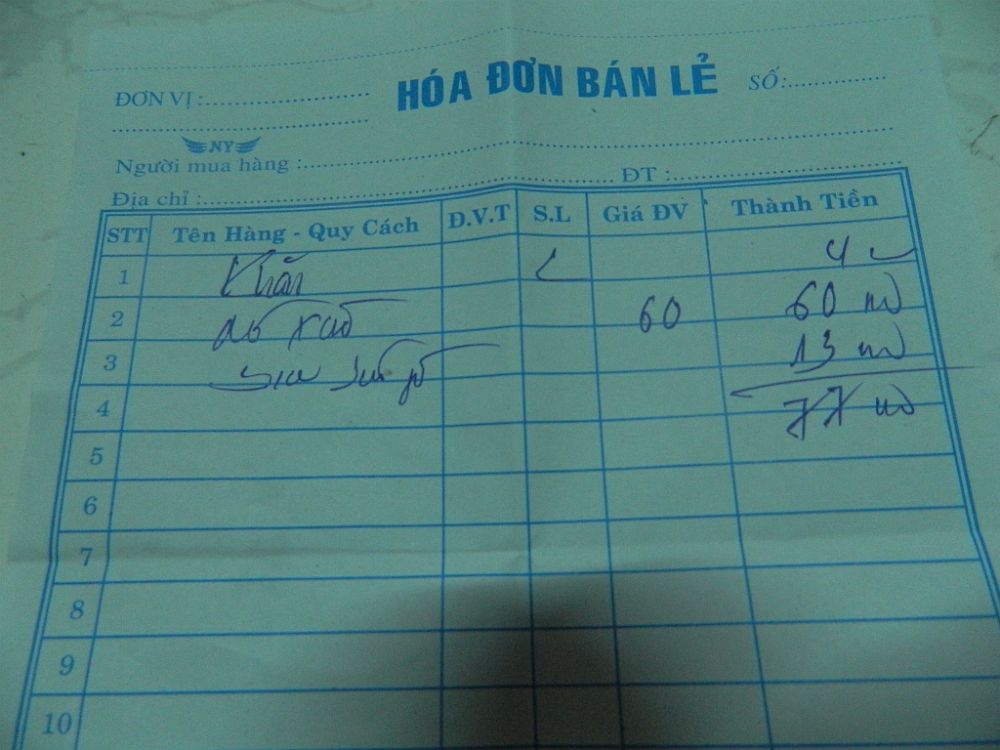 HÓA ĐƠN BÁN LẺ
ĐƠN VỊ :
SỐ:
NY
Người mua hàng :
Địa chỉ :
ĐT :
STT Tên Hàng - Quy Cách Đ.V.T S.L Giá ĐV Thành Tiền
1 Khăn 4
2 60 60
3 13
4 77
5
6
7
8
9
10